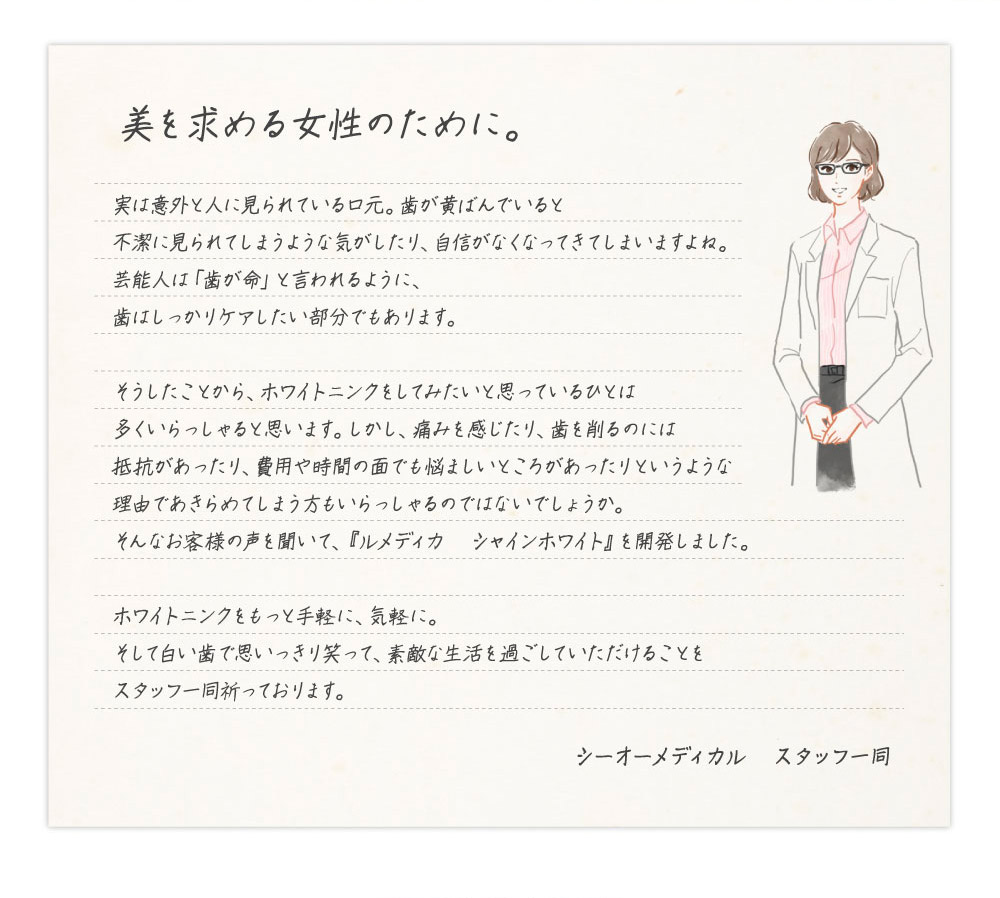 美を求める女性のために。
実は意外と人に見られている口元。歯が黄ばんでいると
不潔に見られてしまうような気がしたり、自信がなくなってきてしまいますよね。
芸能人は「歯が命」と言われるように、
歯はしっかりケアしたい部分でもあります。
そうしたことから、ホワイトニンクをしてみたいと思っているひとは
多くいらっしゃると思います。しかし、痛みを感じたり、歯を削るのには
抵抗があったり、費用や時間の面でも悩ましいところがあったりというような
理由であきらめてしまう方もいらっしゃるのではないでしょうか。
そんなお客様の声を聞いて、『ルメディカ　シャインホワイト』を開発しました。
ホワイトニンクをもっと手軽に、気軽に。
そして白い歯で思いっきり笑って、素敵な生活を過ごしていただけることを
スタッフ一同祈っております。
シーオーメディカル　スタッフ一同